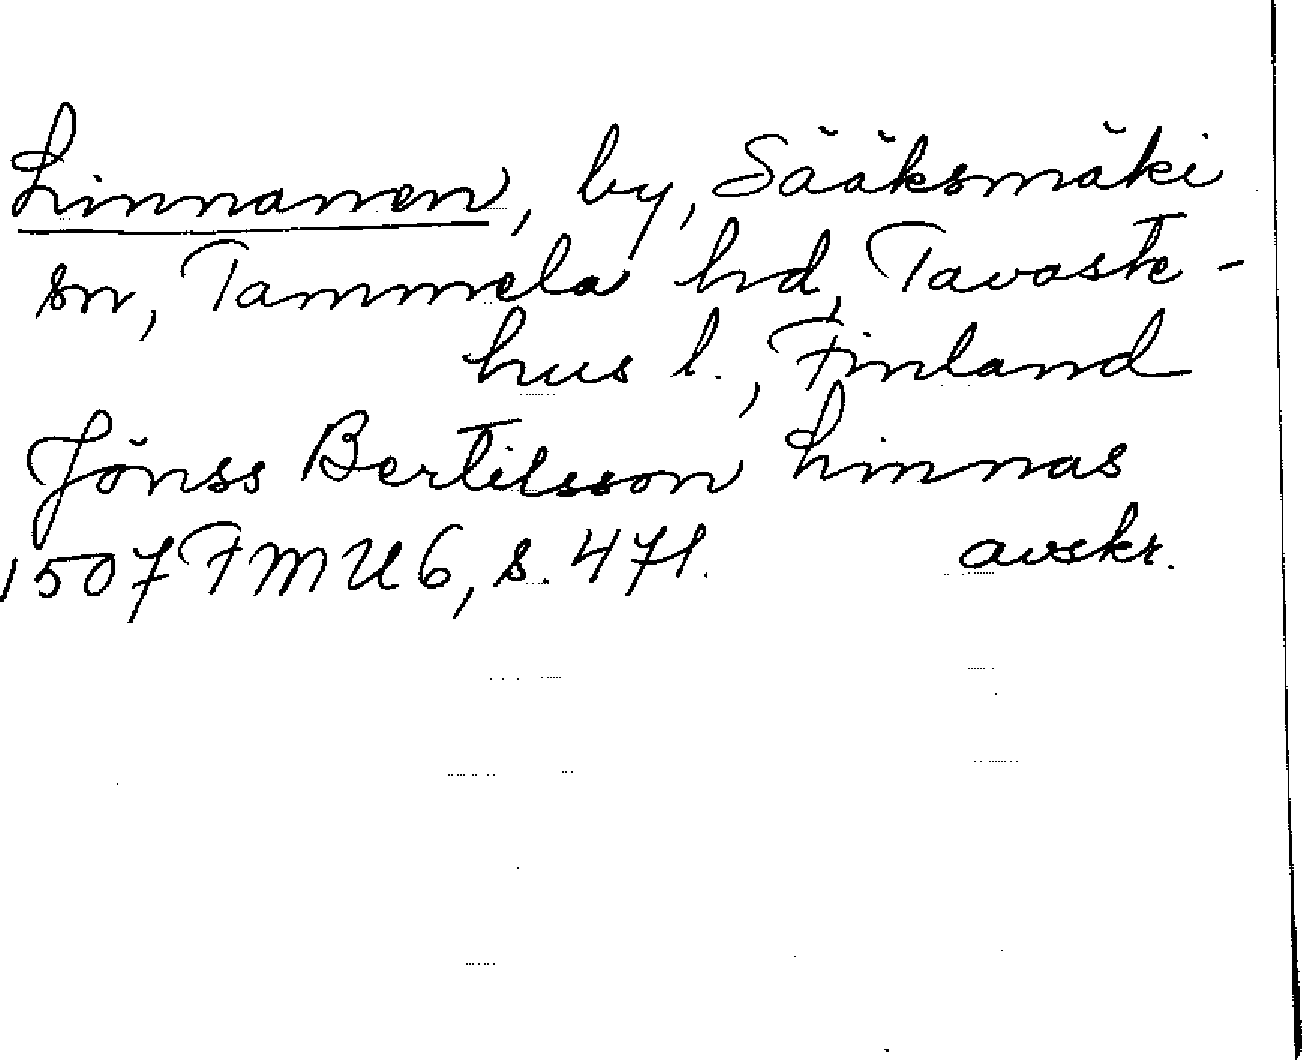 Linnanen, by, Sääksmäki
sn, Tammela hd, Tavaste-
hus l., Finland
Jönss Bertilsson Linnas
1507 FMU 6, s. 471. avskr.